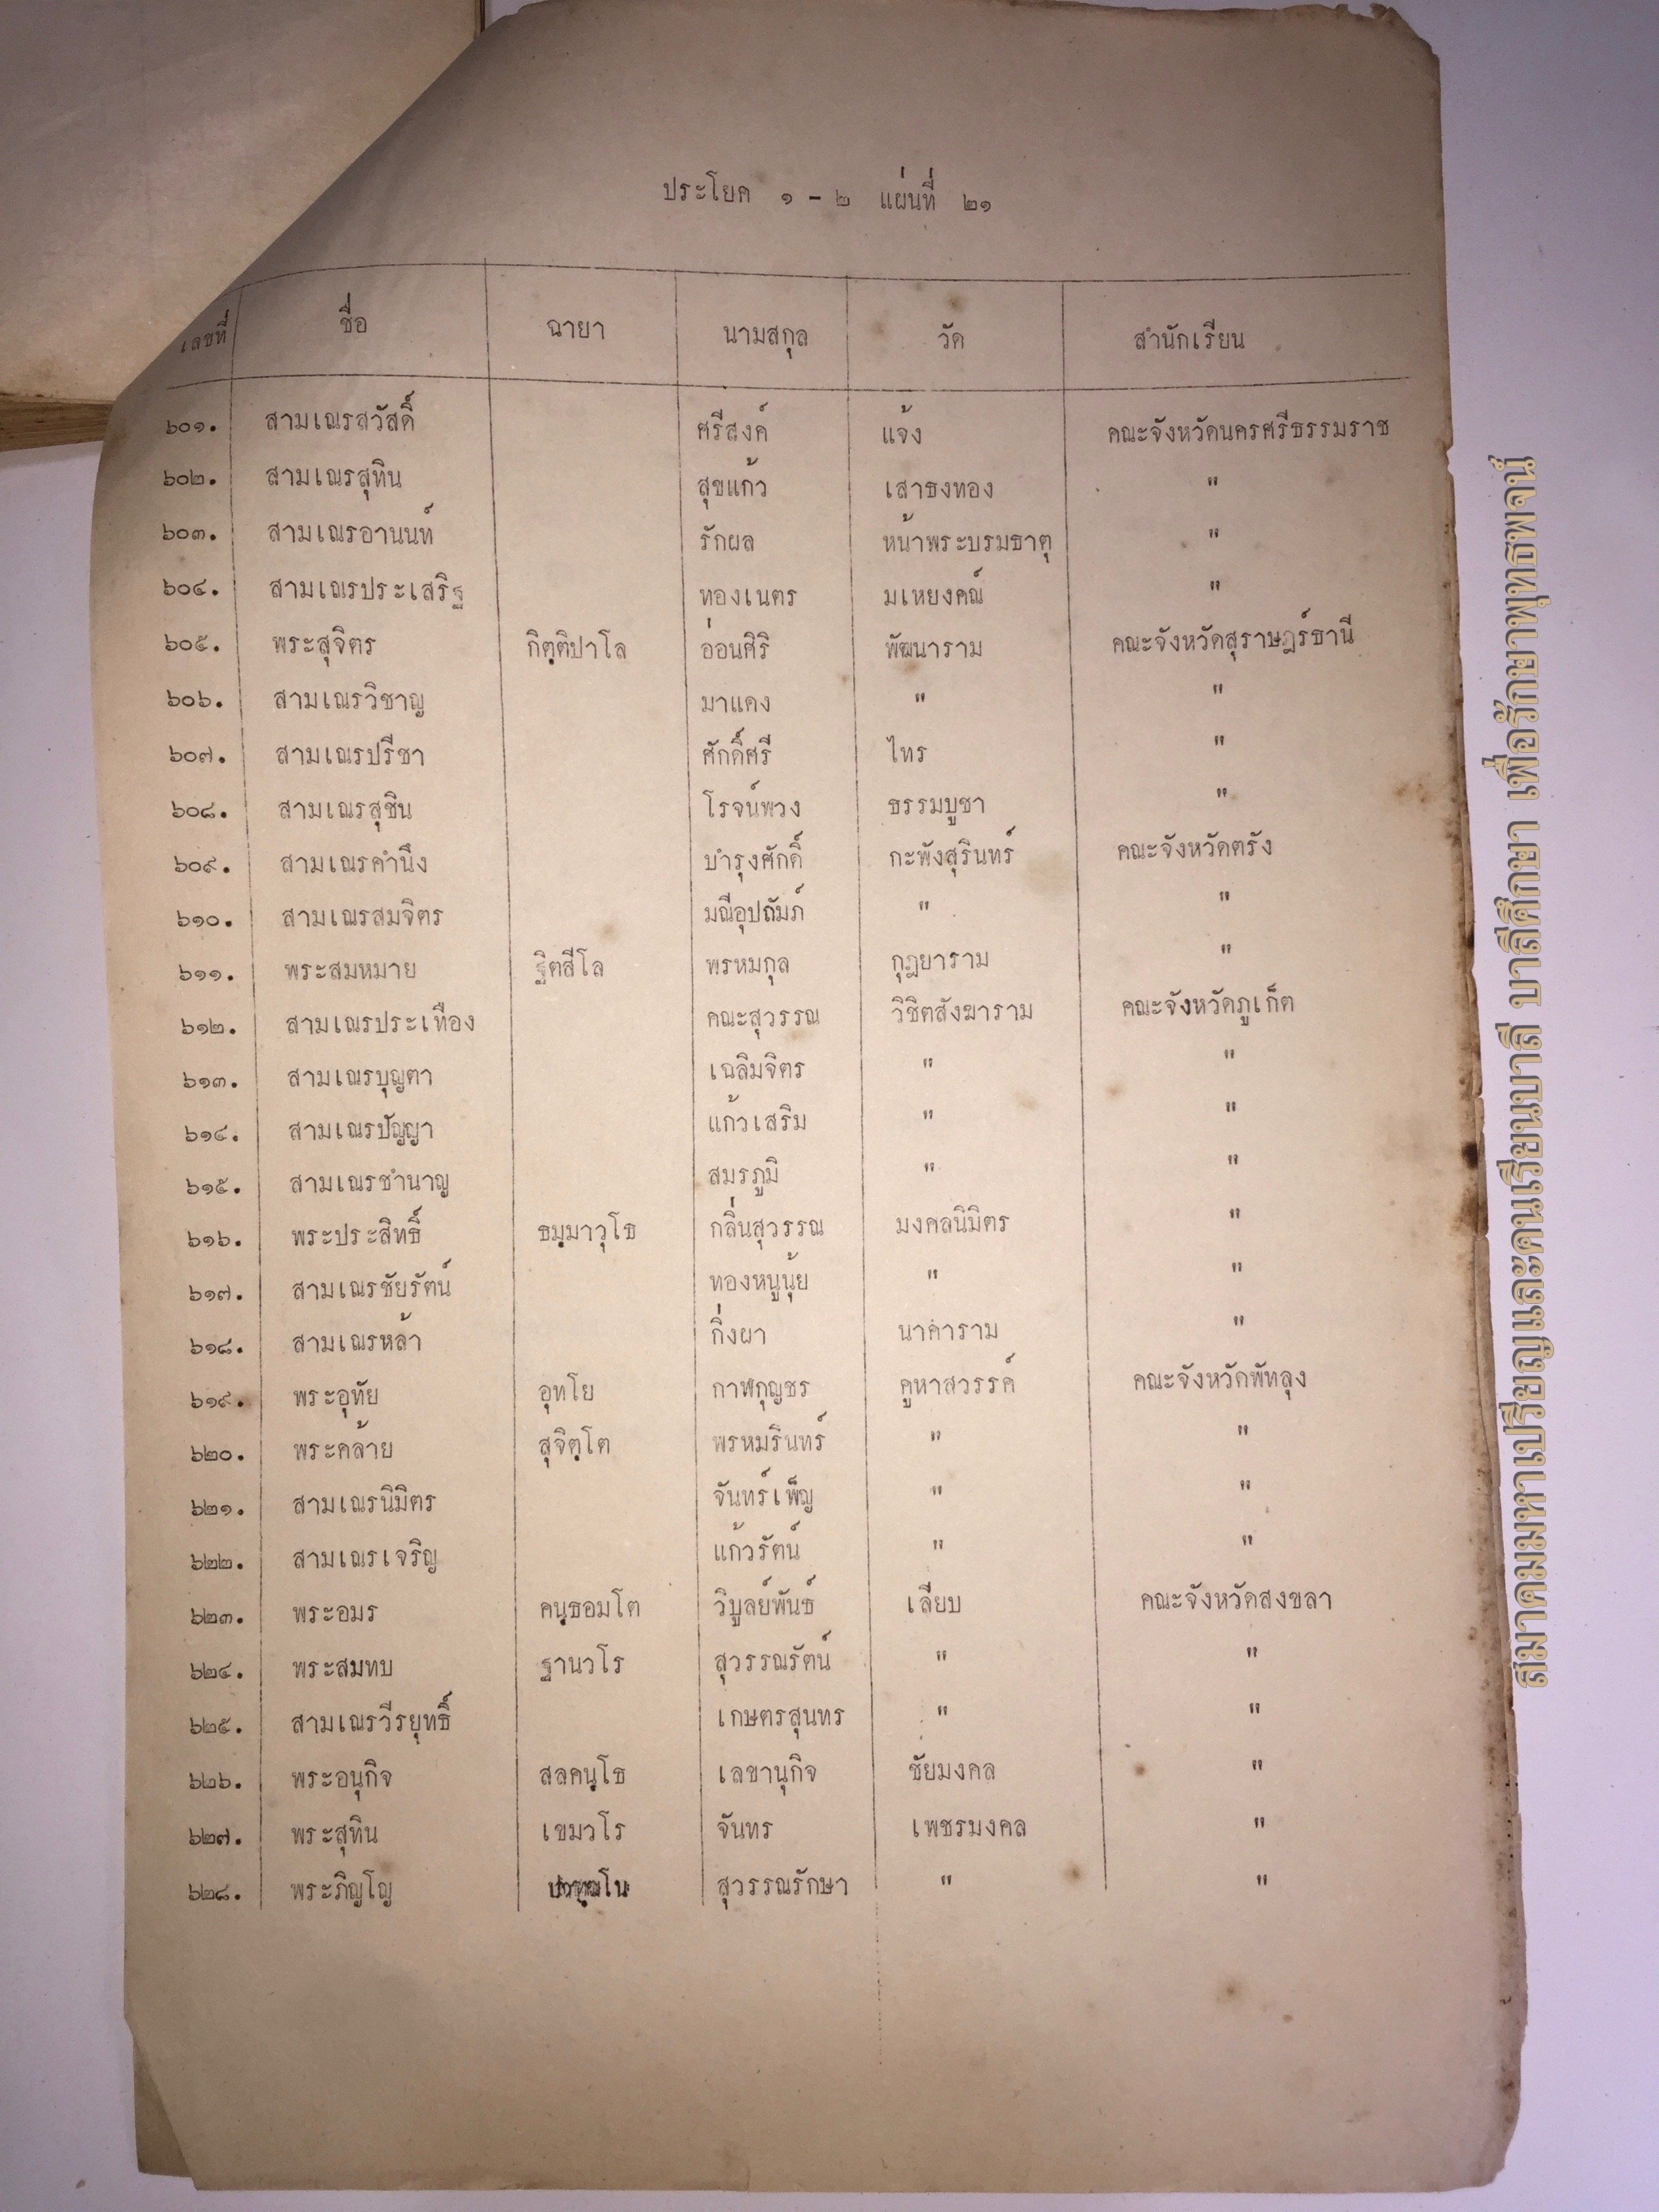 ประโยค ๑ - ๒ แผ่นที่ ๒๑
เลขที่ ชื่อ ฉายา นามสกุล วัด สำนักเรียน
๖๐๑. สามเณรสวัสดิ์ ศรีสงค์ แจ้ง คณะจังหวัดนครศรีธรรมราช
๖๐๒. สามเณรสุทิน สุขแก้ว เสาธงทอง "
๖๐๓. สามเณรอานนท์ รักผล หน้าพระบรมธาตุ "
๖๐๔. สามเณรประเสริฐ ทองเนตร มเหยงคณ์ "
๖๐๕. พระสุจิตร กิตฺติปาโล อ่อนศิริ พัฒนาราม คณะจังหวัดสุราษฎร์ธานี
๖๐๖. สามเณรวิชาญ มาแดง " "
๖๐๗. สามเณรปรีชา ศักดิ์ศรี ไทร "
๖๐๘. สามเณรสุชิน โรจน์พวง ธรรมบูชา "
๖๐๙. สามเณรคำนึง บำรุงศักดิ์ กะพังสุรินทร์ คณะจังหวัดตรัง
๖๑๐. สามเณรสมจิตร มณีอุปถัมภ์ " "
๖๑๑. พระสมหมาย ฐิตสีโล พรหมกุล กุฎยาราม "
๖๑๒. สามเณรประเทือง คณะสุวรรณ วิชิตสังฆาราม คณะจังหวัดภูเก็ต
๖๑๓. สามเณรบุญตา เฉลิมจิตร " "
๖๑๔. สามเณรปัญญา แก้วเสริม " "
๖๑๕. สามเณรชำนาญ สมรภูมิ " "
๖๑๖. พระประสิทธิ์ ธมฺมาวุโธ กลิ่นสุวรรณ มงคลนิมิตร "
๖๑๗. สามเณรชัยรัตน์ ทองหนูนุ้ย " "
๖๑๘. สามเณรหล้า กิ่งผา นาคาราม "
๖๑๙. พระอุทัย อุทโย กาฬกุญชร คูหาสวรรค์ คณะจังหวัดพัทลุง
๖๒๐. พระคล้าย สุจิตฺโต พรหมรินทร์ " "
๖๒๑. สามเณรนิมิตร จันทร์เพ็ญ " "
๖๒๒. สามเณรเจริญ แก้วรัตน์ " "
๖๒๓. พระอมร คนฺธอมโต วิบูลย์พันธ์ เลียบ คณะจังหวัดสงขลา
๖๒๔. พระสมทบ ฐานวโร สุวรรณรัตน์ " "
๖๒๕. สามเณรวีรยุทธิ์ เกษตรสุนทร " "
๖๒๖. พระอนุกิจ สลคนฺโธ เลขานุกิจ ชัยมงคล "
๖๒๗. พระสุทิน เขมวโร จันทร เพชรมงคล "
๖๒๘. พระภิญโญ สุวรรณรักษา " "
สมาคมมหาเปรียญและคนเรียนบาลี บาลีศึกษา เพื่อรักษาพุทธพจน์